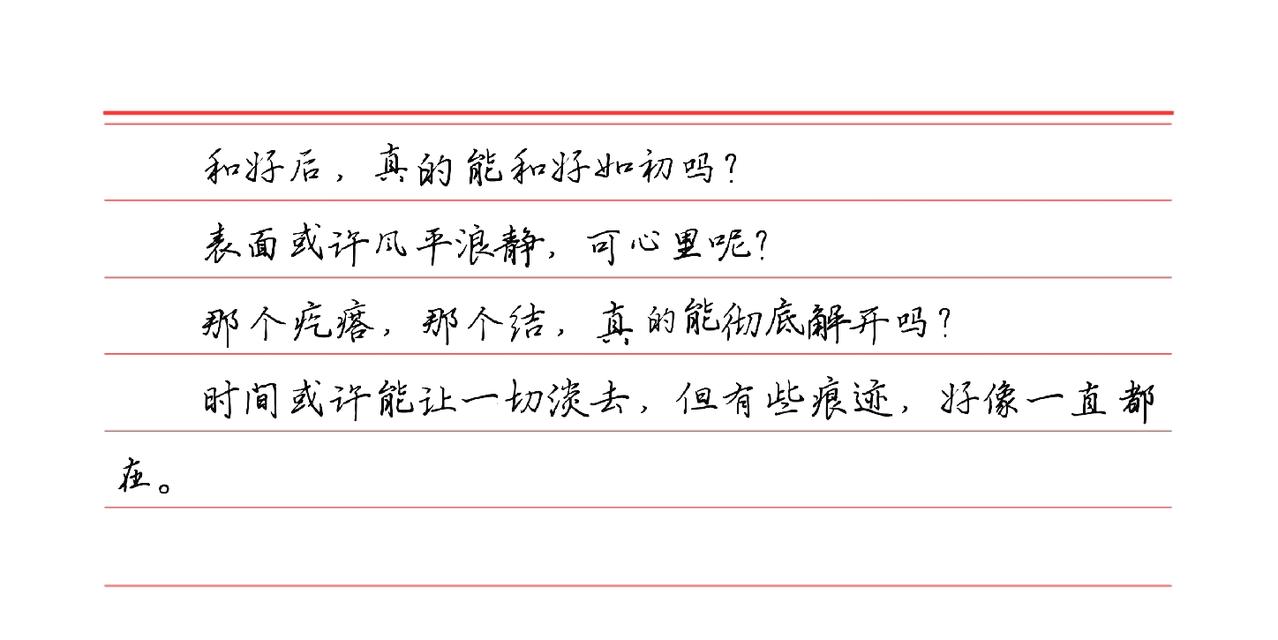 和好后，真的能和好如初吗？
表面或许风平浪静，可心里呢？
那个疙瘩，那个结，真的能彻底解开吗？
时间或许能让一切淡去，但有些痕迹，好像一直都
在。